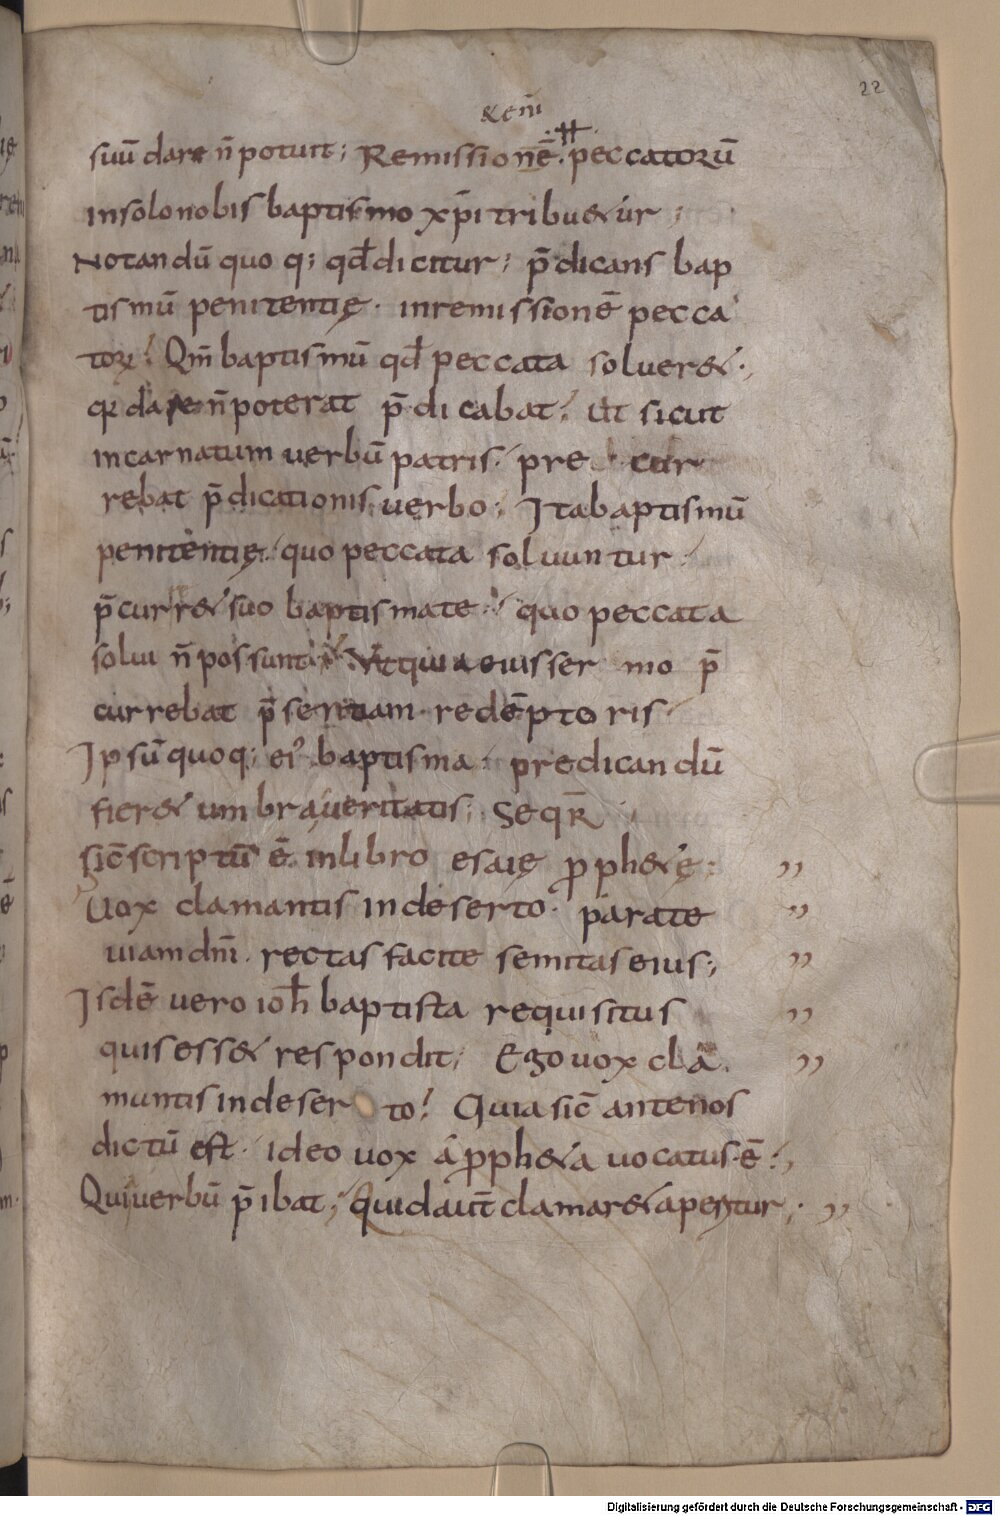 22
& eni̅
suu̅ dare n̅ potuit; Remissione̅ · peccatoru̅
insolo nobis baptismo xp̅i tribu&ur ;
Notandu̅ quo q; qd̅ dicitur; p̅dicans bap
tismu̅ penitentię · inremissione̅ pecca
torꝝ; Qm̅ baptismu̅ qd̅ peccata soluer& ·,
q dare n̅ poterat p̅dicabat; Ut sicut
incarnatum uerbu̅ patris · pre cur
rebat p̅dicationis uerbo; Ita baptismu̅
penitentię · quo peccata soluuntur ·
p̅curr& suo baptismate · quo peccata
solui n̅ possunt; Et quia eius sermo p̅
currebat p̅sentiam rede̅ptoris ·
Ipsu̅ quoq; ei' baptisma · predicandu̅
fier& umbra ueritatis; SeqR̅
Sic̅ scriptu̅ e̅ inlibro esaię ꝓph&ę; ,,
Uox clamantis indeserto · parate ,,
uiam dn̅i · rectas facite semitas eius; ,,
Isde̅ uero ioh̅ baptista requisitus ,,
quis ess& respondit; Ego uox cla ,,
mantis indeserto! Quia sic̅ antenos
dictu̅ est · ideo uox a ꝓph&a uocatus e̅ ·,
Qui uerbu̅ p̅ibat; quid aut̅ clamar& aperitur; ,,
Digitalisierung gefördert durch die Deutsche Forschungsgemeinschaft · DFG